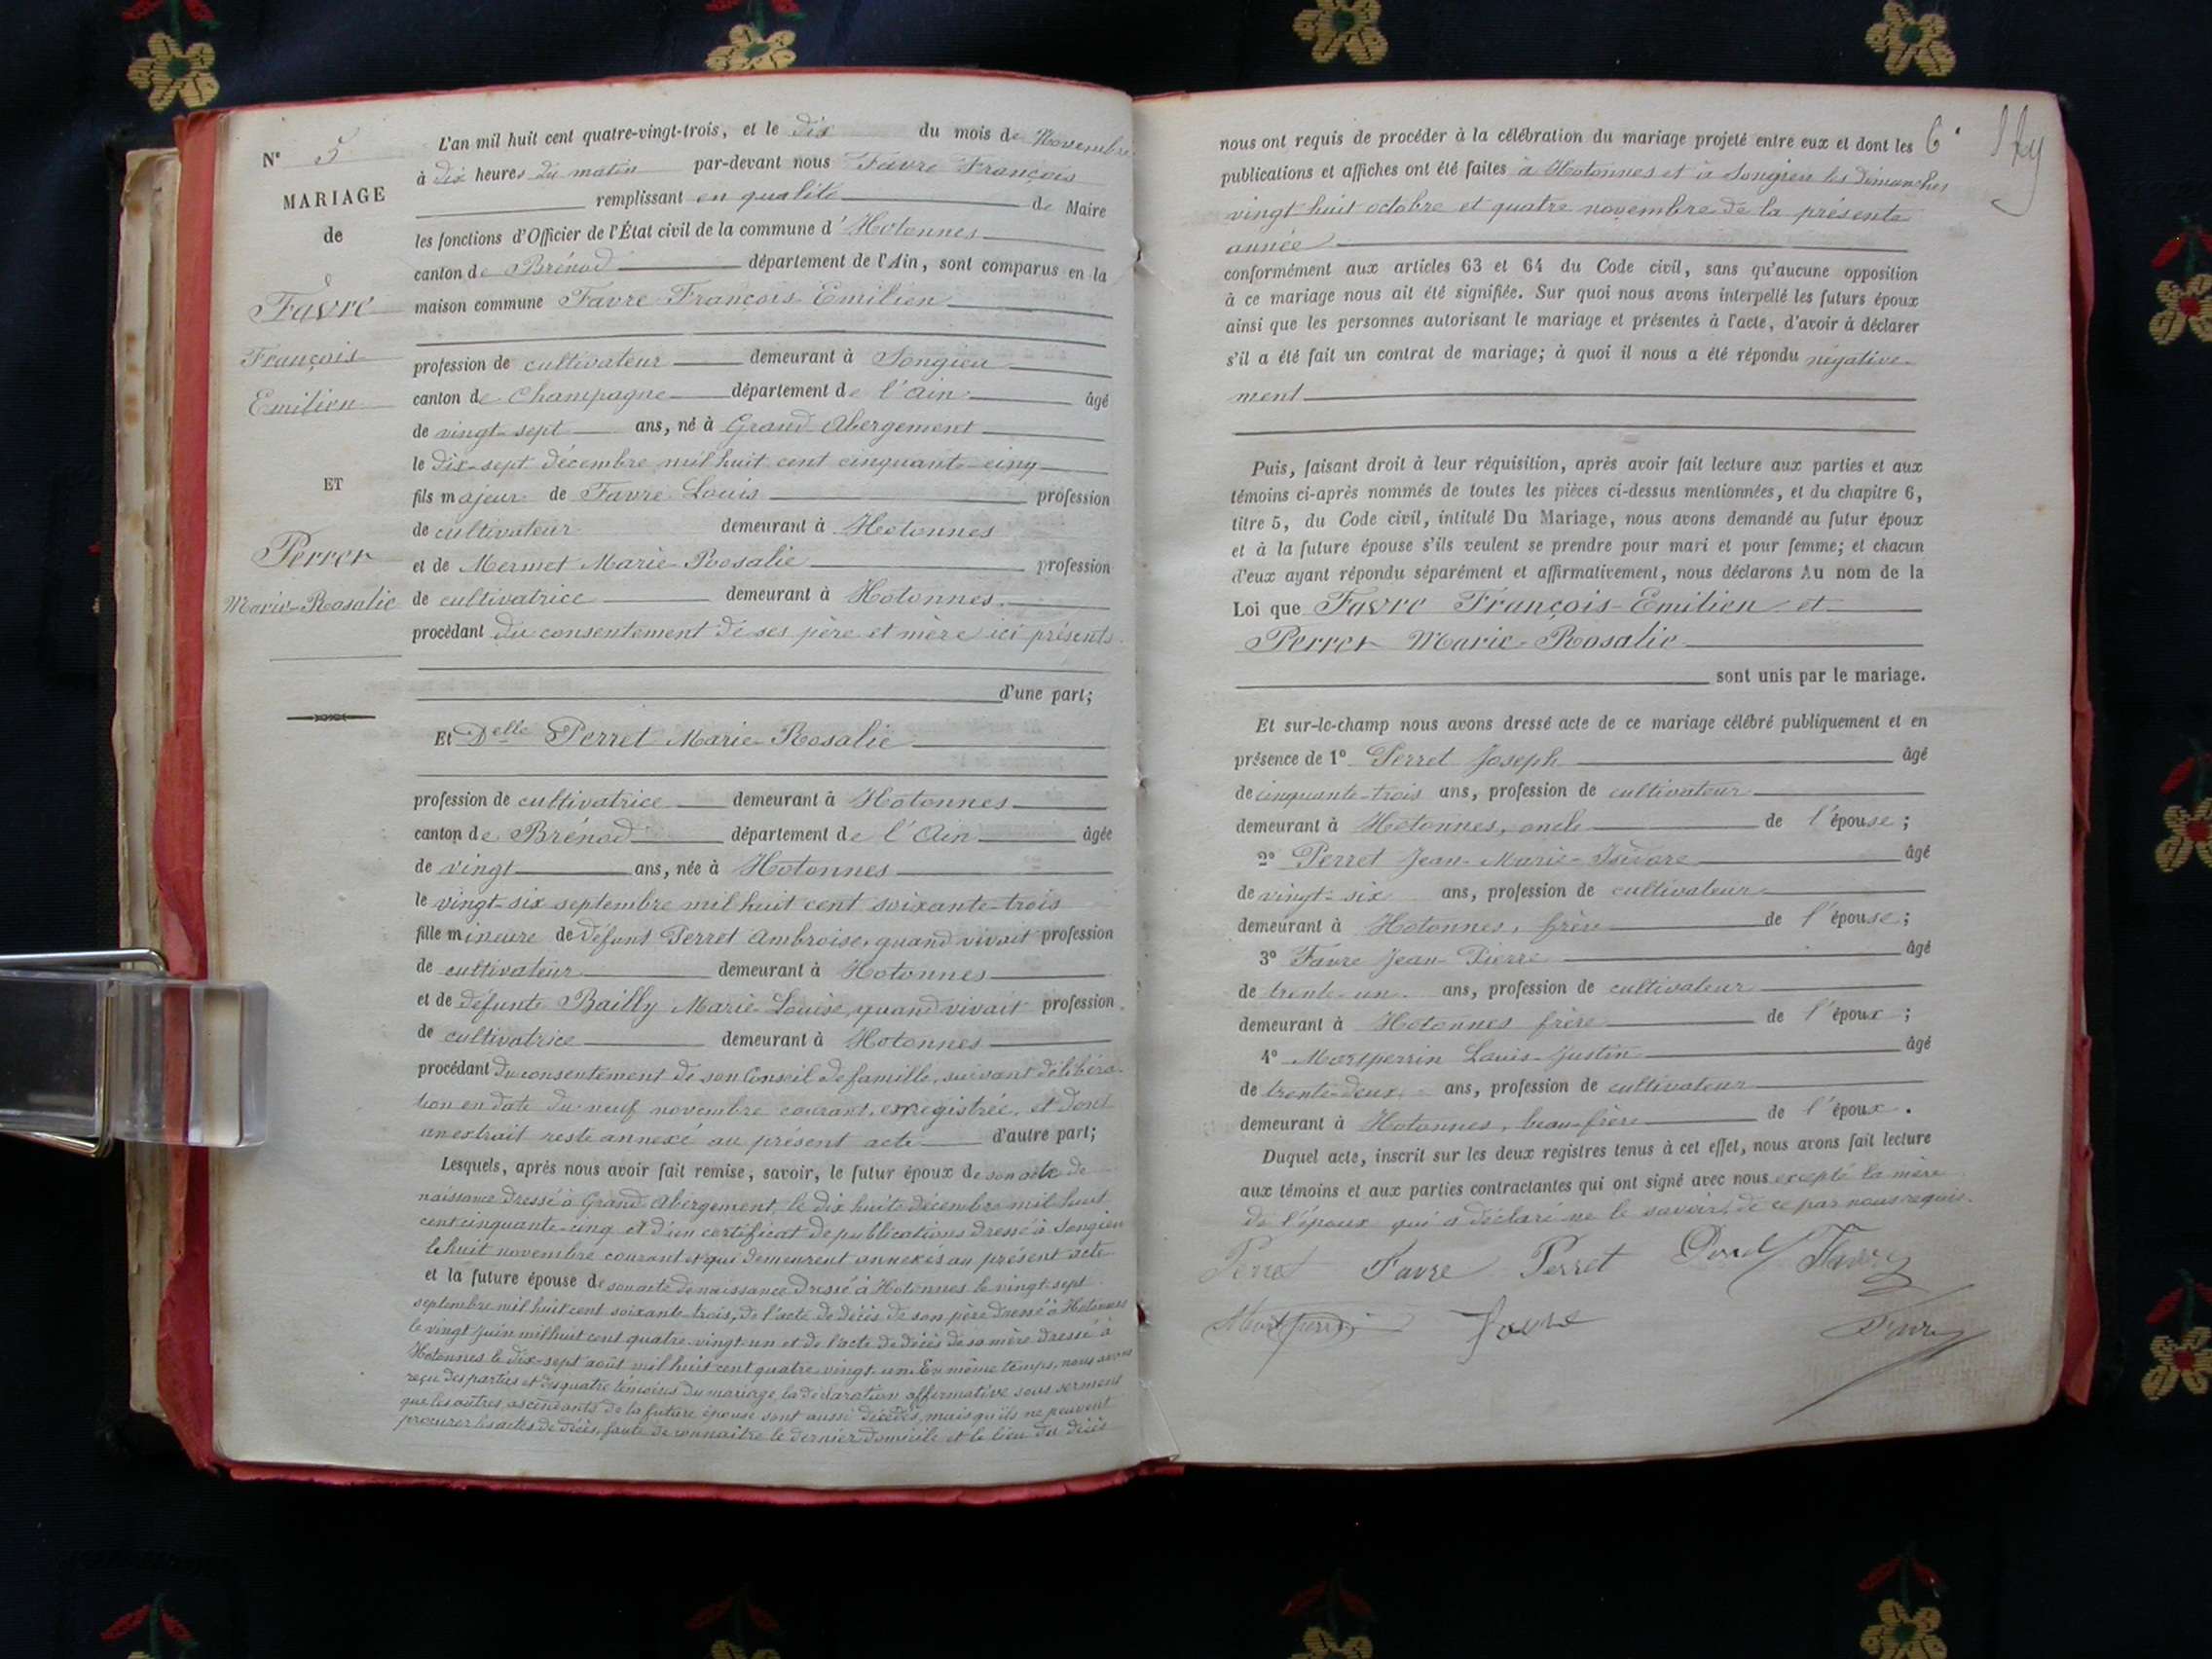 N° 5
MARIAGE
de
Favre
François
Emilien
ET
Perret
Marie-Rosalie
L'an mil huit cent quatre-vingt-trois, et le dix du mois de Novembre
à dix heures du matin par-devant nous Favre François
remplissant en qualité de Maire
les fonctions d'Officier de l'État civil de la commune d'Hotonnes
canton de Brénod département de l'Ain, sont comparus en la
maison commune Favre François Emilien
profession de cultivateur demeurant à Songieu
canton de Champagne département de l'Ain âgé
de vingt-sept ans, né à Grand Abergement
le dix-sept décembre mil huit cent cinquante-cinq
fils majeur de Favre Louis profession
de cultivateur demeurant à Hotonnes
et de Mermet Marie-Rosalie profession
de cultivatrice demeurant à Hotonnes
procédant du consentement de ses père et mère ici présents
d'une part;
Et Delle Perret Marie-Rosalie
profession de cultivatrice demeurant à Hotonnes
canton de Brénod département de l'Ain âgée
de vingt ans, née à Hotonnes
le vingt-six septembre mil huit cent soixante-trois
fille mineure de défunt Perret Ambroise, quand vivait profession
de cultivateur demeurant à Hotonnes
et de défunte Bailly Marie-Louise, quand vivait profession
de cultivatrice demeurant à Hotonnes
procédant du consentement de son Conseil de famille, suivant délibéra-
tion en date du neuf novembre courant, enregistrée, et dont
un extrait reste annexé au présent acte d'autre part;
Lesquels, après nous avoir fait remise, savoir, le futur époux de son acte de
naissance dressé à Grand Abergement, le dix huit décembre mil huit
cent cinquante-cinq et d'un certificat de publications dressé à Songieu
le huit novembre courant et qui demeurent annexés au présent acte
et la future épouse de son acte de naissance dressé à Hotonnes le vingt-sept
septembre mil huit cent soixante trois, de l'acte de décès de son père dressé à Hotonnes
le vingt juin mil huit cent quatre-vingt-un et de l'acte de décès de sa mère dressé à
Hotonnes le dix-sept août mil huit cent quatre-vingt-un. En même temps, nous avons
reçu des parties et des quatre témoins du mariage la déclaration affirmative sous serment
que les autres ascendants de la future épouse sont aussi décédés, mais qu'ils ne peuvent
procurer les actes de décès, faute de connaître le dernier domicile et le lieu du décès
6
nous ont requis de procéder à la célébration du mariage projeté entre eux et dont les
publications et affiches ont été faites à Hotonnes et à Songieu les dimanches
vingt huit octobre et quatre novembre de la présente
année
conformément aux articles 63 et 64 du Code civil, sans qu'aucune opposition
à ce mariage nous ait été signifiée. Sur quoi nous avons interpellé les futurs époux
ainsi que les personnes autorisant le mariage et présentes à l'acte, d'avoir à déclarer
s'il a été fait un contrat de mariage; à quoi il nous a été répondu négative-
ment
Puis, faisant droit à leur réquisition, après avoir fait lecture aux parties et aux
témoins ci-après nommés de toutes les pièces ci-dessus mentionnées, et du chapitre 6,
titre 5, du Code civil, intitulé Du Mariage, nous avons demandé au futur époux
et à la future épouse s'ils veulent se prendre pour mari et pour femme; et chacun
d'eux ayant répondu séparément et affirmativement, nous déclarons Au nom de la
Loi que Favre François-Emilien et
Perret Marie-Rosalie
sont unis par le mariage.
Et sur-le-champ nous avons dressé acte de ce mariage célébré publiquement et en
présence de 1° Perret Joseph âgé
de cinquante-trois ans, profession de cultivateur
demeurant à Hotonnes, oncle de l'épouse;
2° Perret Jean-Marie-Isidore âgé
de vingt-six ans, profession de cultivateur
demeurant à Hotonnes, frère de l'épouse;
3° Favre Jean-Pierre âgé
de trente-un ans, profession de cultivateur
demeurant à Hotonnes frère de l'époux;
4° Louis-Justin âgé
de trente-deux ans, profession de cultivateur
demeurant à Hotonnes, beau-frère de l'époux.
Duquel acte, inscrit sur les deux registres tenus à cet effet, nous avons fait lecture
aux témoins et aux parties contractantes qui ont signé avec nous excepté la mère
de l'époux qui a déclaré ne le savoir, de ce par nous requis.
Perret Favre Perret Favre
Favre Favre